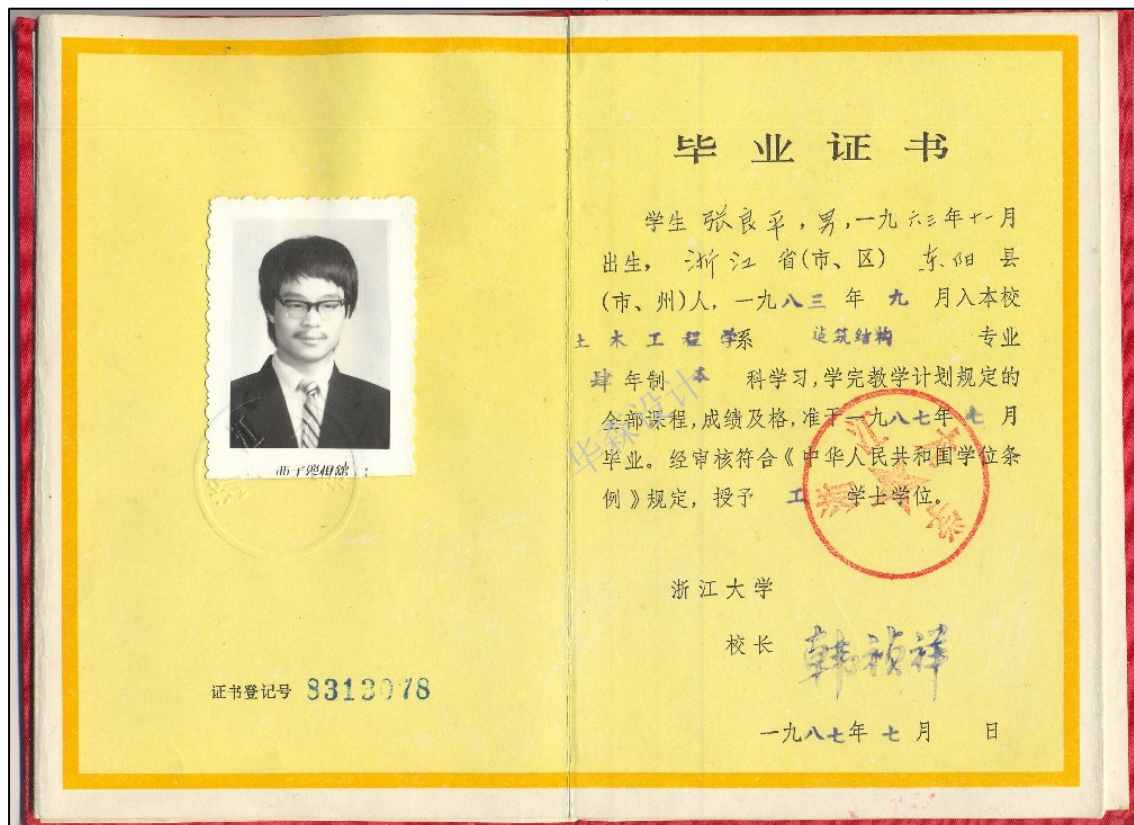 西子照相舘
证书登记号 8313078
毕业证书
学生 张良平，男，一九六三年十一月
出生， 浙江 省(市、区) 东阳 县
(市、州)人，一九八三 年 九 月入本校
土木工程学系 建筑结构 专业
肆 年制 本 科学习，学完教学计划规定的
全部课程，成绩及格，准于一九八七年 七 月
毕业。经审核符合《中华人民共和国学位条
例》规定，授予 工 学士学位。
华森设计
浙江大学
浙江大学
校长 韩祯祥
一九八七年 七 月 日